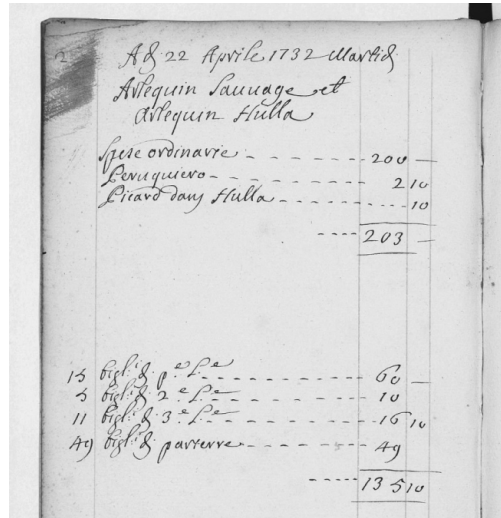 2
Adj 22 Aprile 1732 Martidj
Arlequin Sauuage et
Arlequin Hulla
Spese ordinarie - - - - - - - 200 —
Peruquiero - - - - - - - 2 10
Picard dans Hulla - - - - - - - 10
- - - - 203 —
15 bigl:i dj p.e L.e - - - - - - - 60 —
5 bigl:i dj 2.e L.e - - - - - - - 10
11 bigl:i dj 3.e L.e - - - - - - - 16 10
49 bigl:i dj parterre - - - - - - - 49
- - - - 135 10